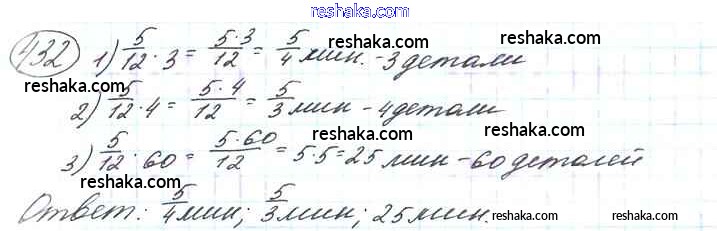 www.reshaka.com
432 1) 5/12 · 3 = 5·3/12 = 5/4 мин. - 3 детали
reshaka.com reshaka.com reshaka.com
2) 5/12 · 4 = 5·4/12 = 5/3 мин - 4 детали
reshaka.com reshaka.com
3) 5/12 · 60 = 5·60/12 = 5·5=25 мин - 60 деталей
reshaka.com reshaka.com
Ответ: 5/4 мин; 5/3 мин; 25 мин.
reshaka.com reshaka.com